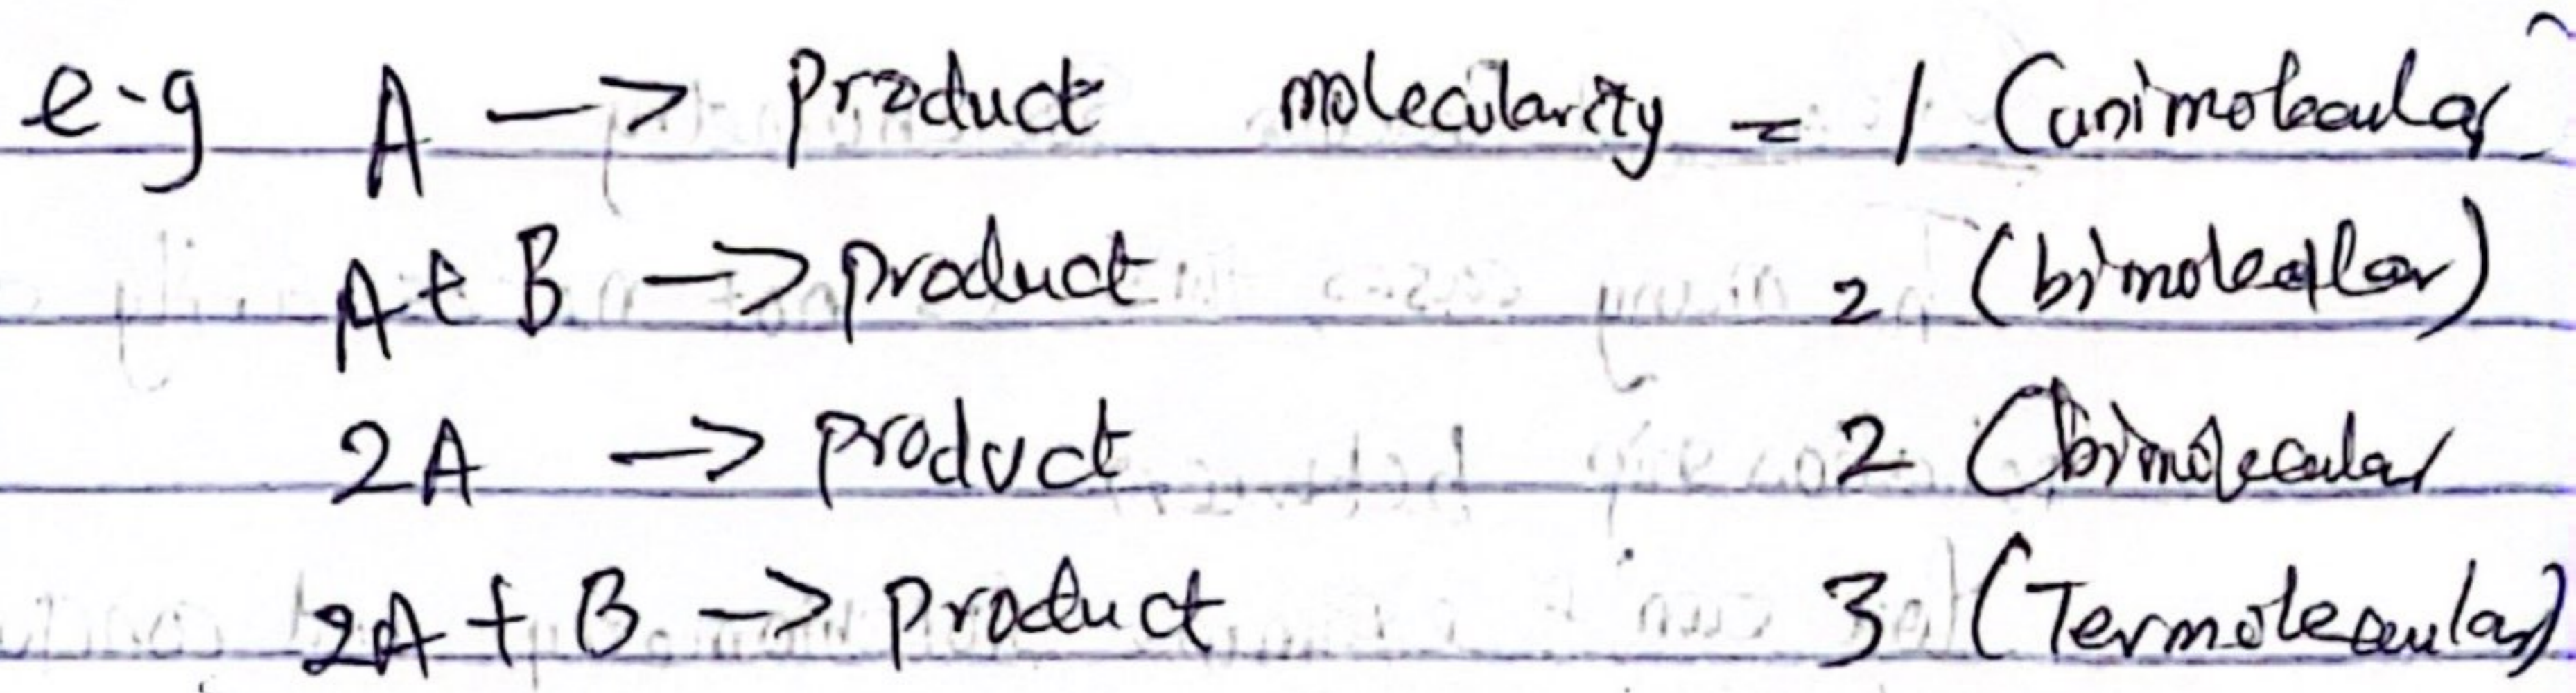 e-g A -> product molecularity = 1 (unimolecular
A + B -> product 2 (bimolecular)
2A -> product 2 (bimolecular
2A + B -> product 3 (Termolecular)